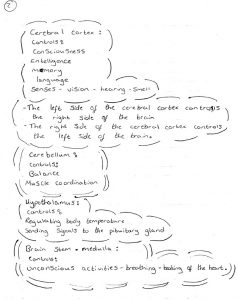 2
Cerebral cortex:
Controls:
Consciousness
Entelligence
memory
language
Senses - vision - hearing - smell
- The left side of the cerebral cortex controls
the right side of the brain
- The right side of the cerebral cortex controls
the left side of the brain.
Cerebellum:
Controls:
Balance
Muscle coordination
Hypothalamus:
Controls:
Regulating body temperature
Sending signals to the pituitary gland
Brain stem - medulla:
Controls:
Unconscious activities - breathing - beating of the heart.